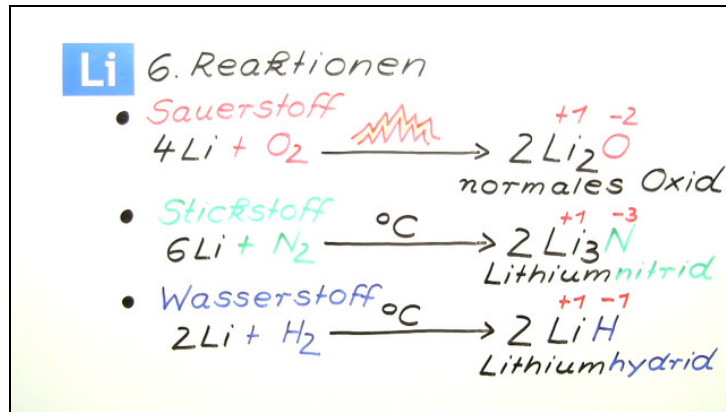 Li 6. Reaktionen
• Sauerstoff
+1 -2
4Li + O₂ → 2Li₂O
normales Oxid
• Stickstoff
°C +1 -3
6Li + N₂ → 2Li₃N
Lithiumnitrid
• Wasserstoff
°C +1 -1
2Li + H₂ → 2LiH
Lithiumhydrid